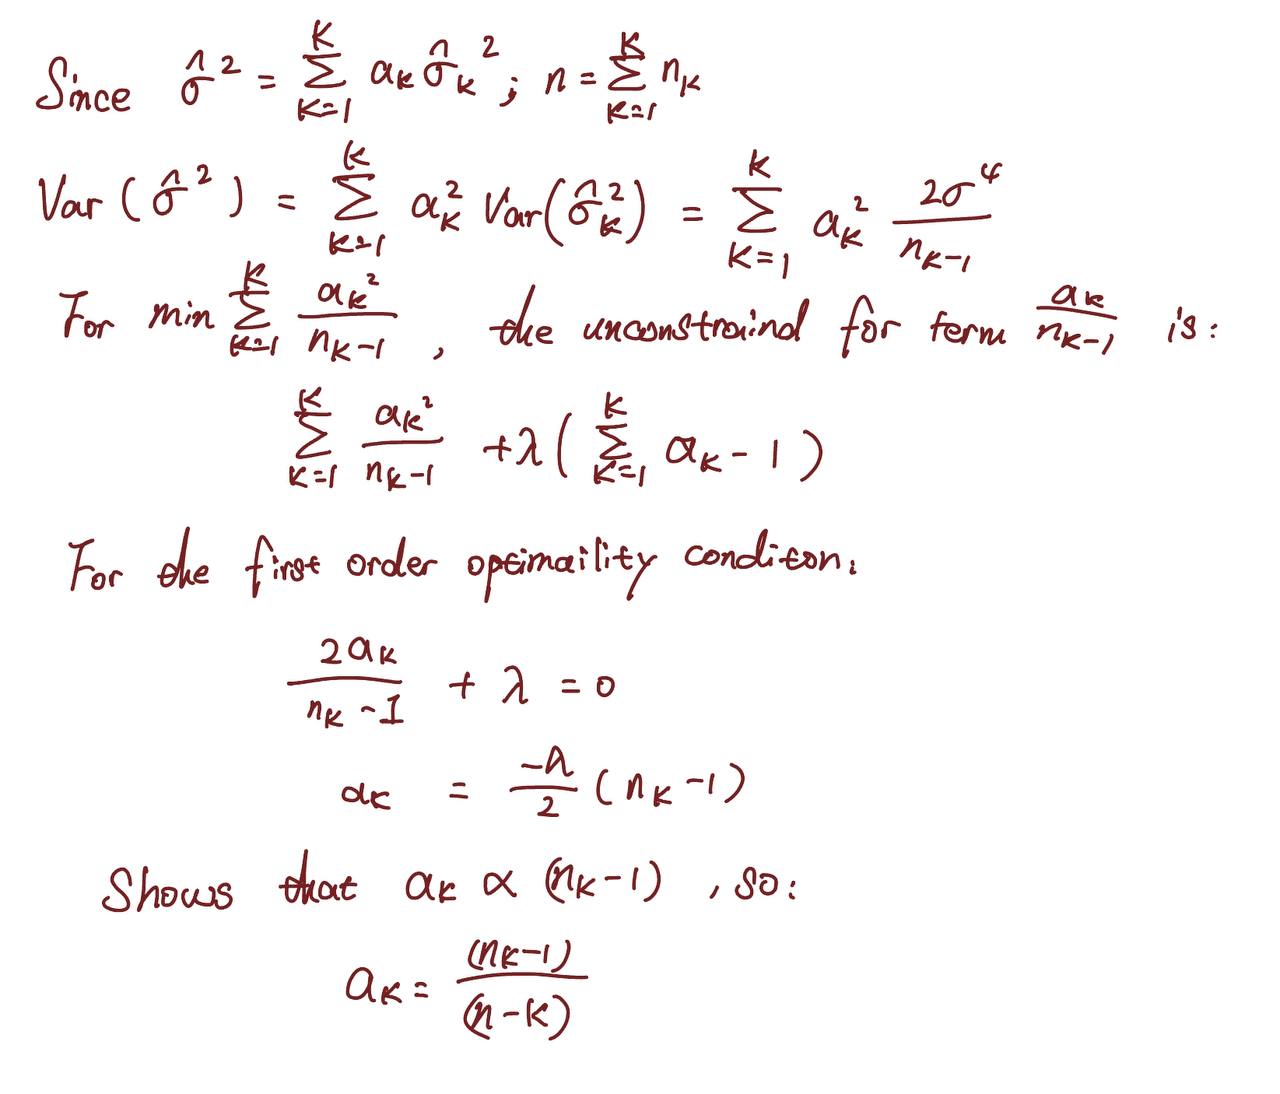 Since σ̂² = ∑_{K=1}^{K} a_K σ̂_K² ; n = ∑_{K=1}^{K} n_K
Var(σ̂²) = ∑_{K=1}^{K} a_K² Var(σ̂_K²) = ∑_{K=1}^{K} a_K² 2σ⁴/(n_{K-1})
For min ∑_{K=1}^{K} a_K²/(n_{K-1}) , the unconstraind for term a_K/(n_{K-1}) is:
∑_{K=1}^{K} a_K²/(n_K-1) + λ( ∑_{K=1}^{K} a_K - 1 )
For the first order optimaility conditon:
2a_K/(n_K - 1) + λ = 0
a_K = -λ/2 (n_K - 1)
Shows that a_K ∝ (n_K-1) , so:
a_K = (n_K-1)/(n-K)